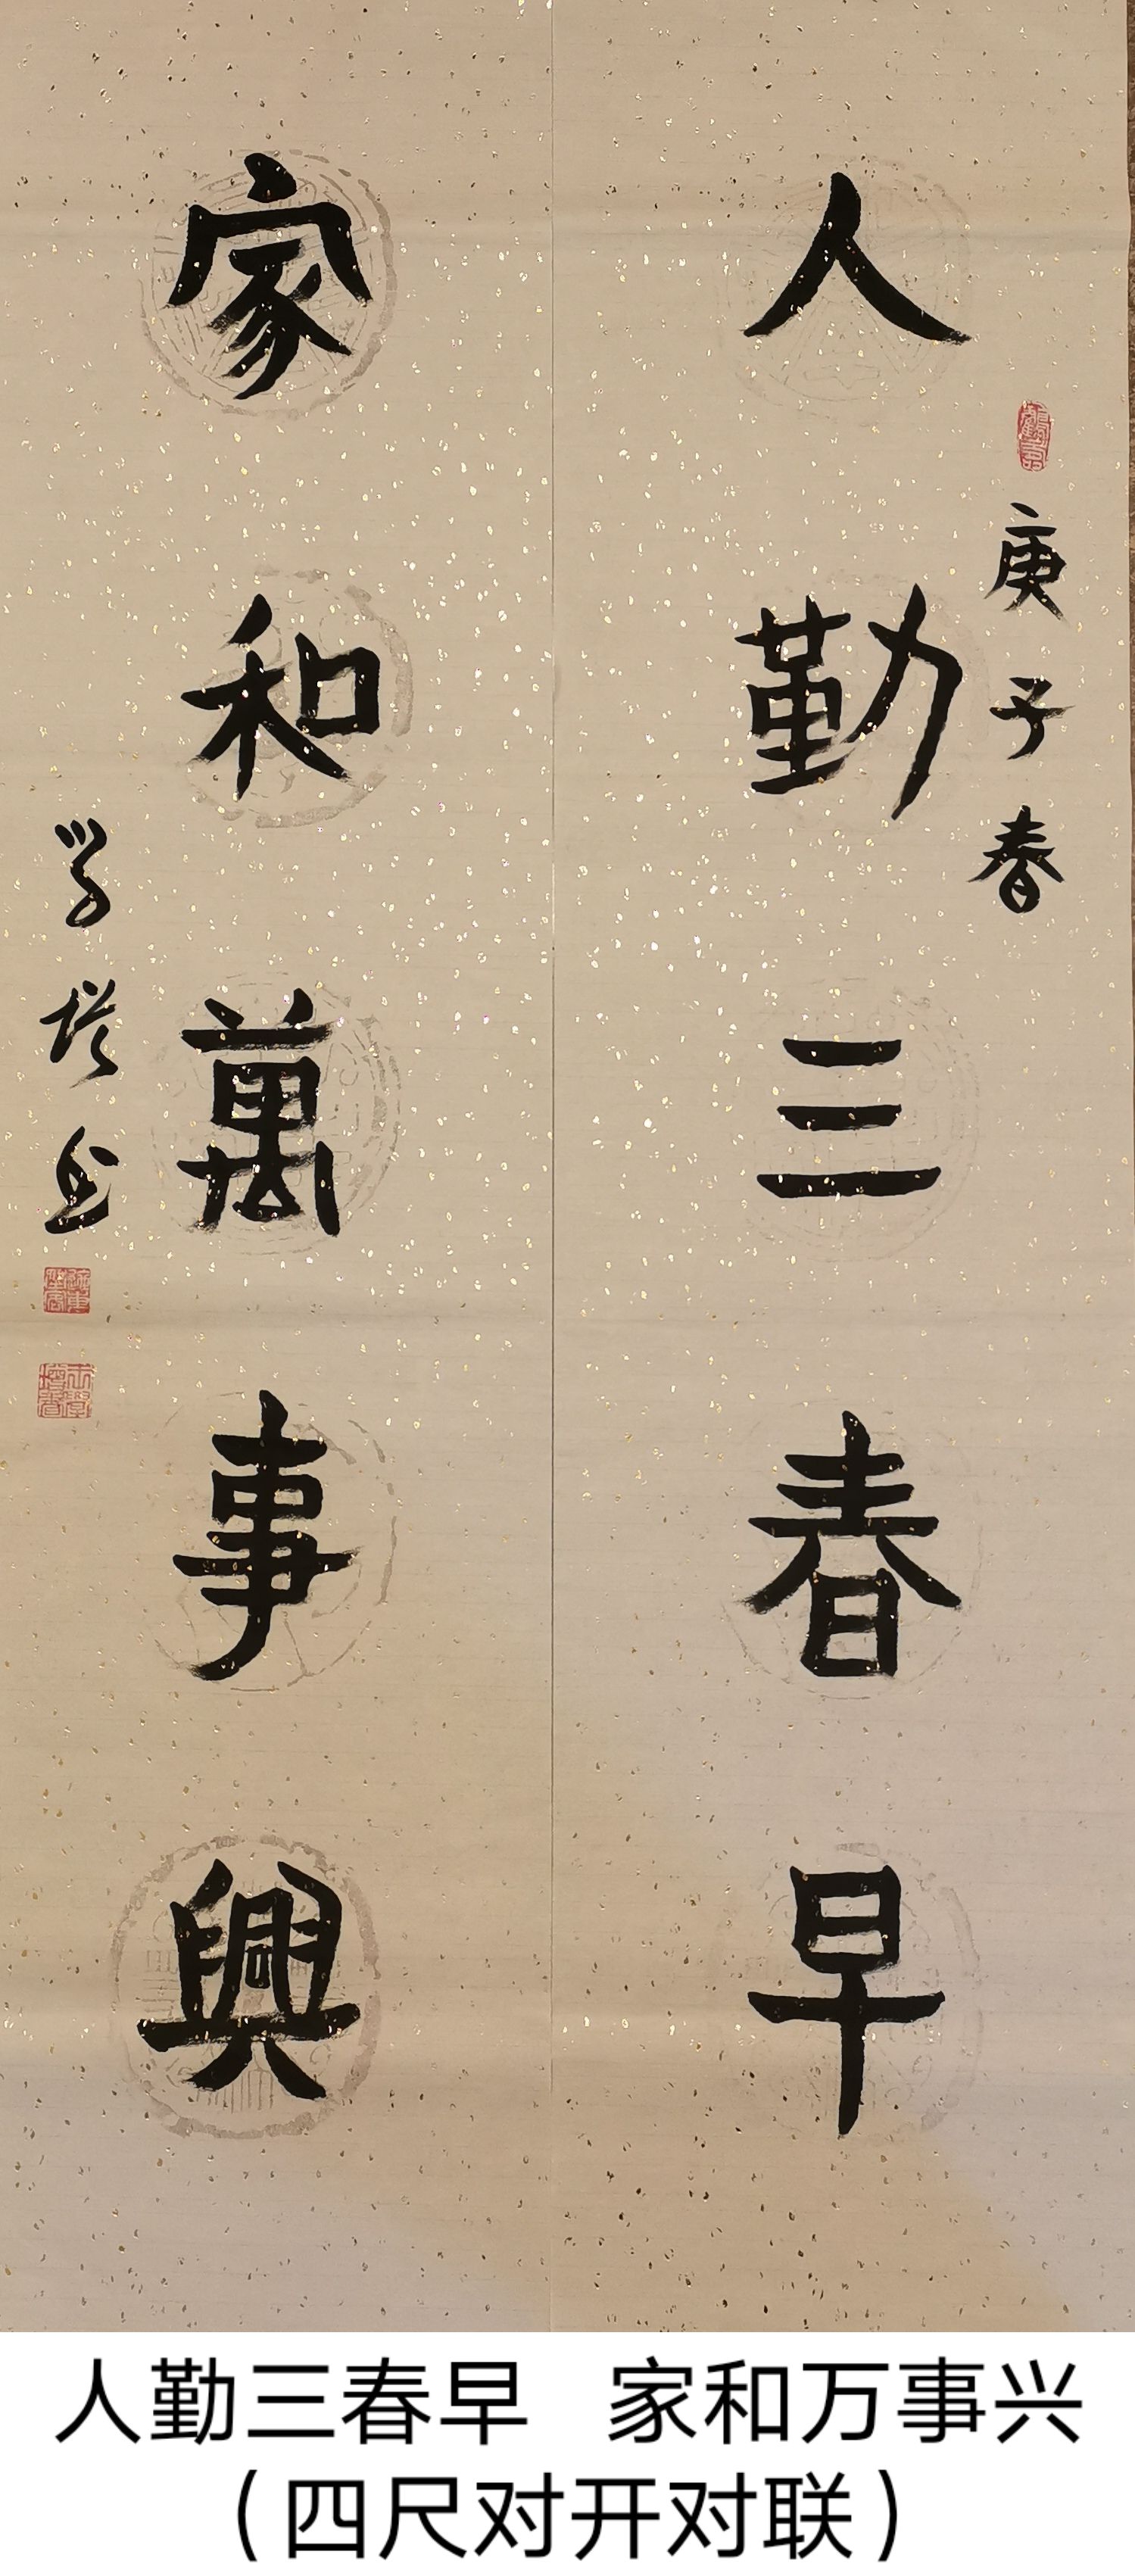 人勤三春早
庚子春
家和萬事興
人勤三春早 家和万事兴
（四尺对开对联）